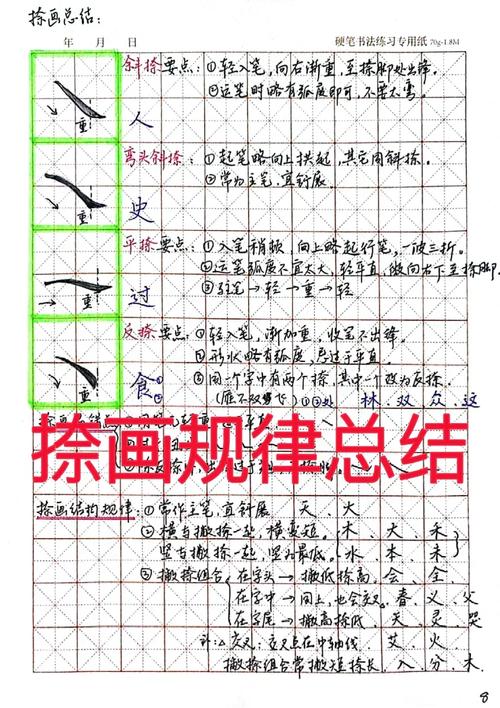 捺画总结:
年 月 日
硬笔书法练习专用纸 70g-1.8M
斜捺要点:①轻入笔,向右渐重,至捺脚处出锋。
②运笔时略有弧度即可,不要太弯。
重 人
弯头斜捺:①起笔略向上拱起,其它同斜捺。
②常为主笔,宜舒展
重 史
平捺要点:①入笔稍顿,向上略起行笔,一波三折。
②运笔弧度不宜太大,轻平直,做向右下至捺脚
③驻笔→轻→重→轻
重 过
反捺要点:①轻入笔,渐加重,收笔不出锋。
②形状略有弧度,忌过于平直。
③同一个字中有两个捺,其中一个改为反捺
重 食
(雁不双飞) 林 双 众 这
捺画规律总结
捺画结构规律:①常作主笔,宜舒展 天、火
②横与撇捺一起,横变短。木、大、禾
竖与撇捺一起,竖为最低。水、本、未
③撇捺组合,在字头→撇低捺高,会、全
在字中→同上,也会交叉,春、义、父
在字尾→撇高捺低、天、灵、哭
注:△交叉:交叉点在中轴线,艾、火
撇捺组合常撇短捺长、入、分、木
8